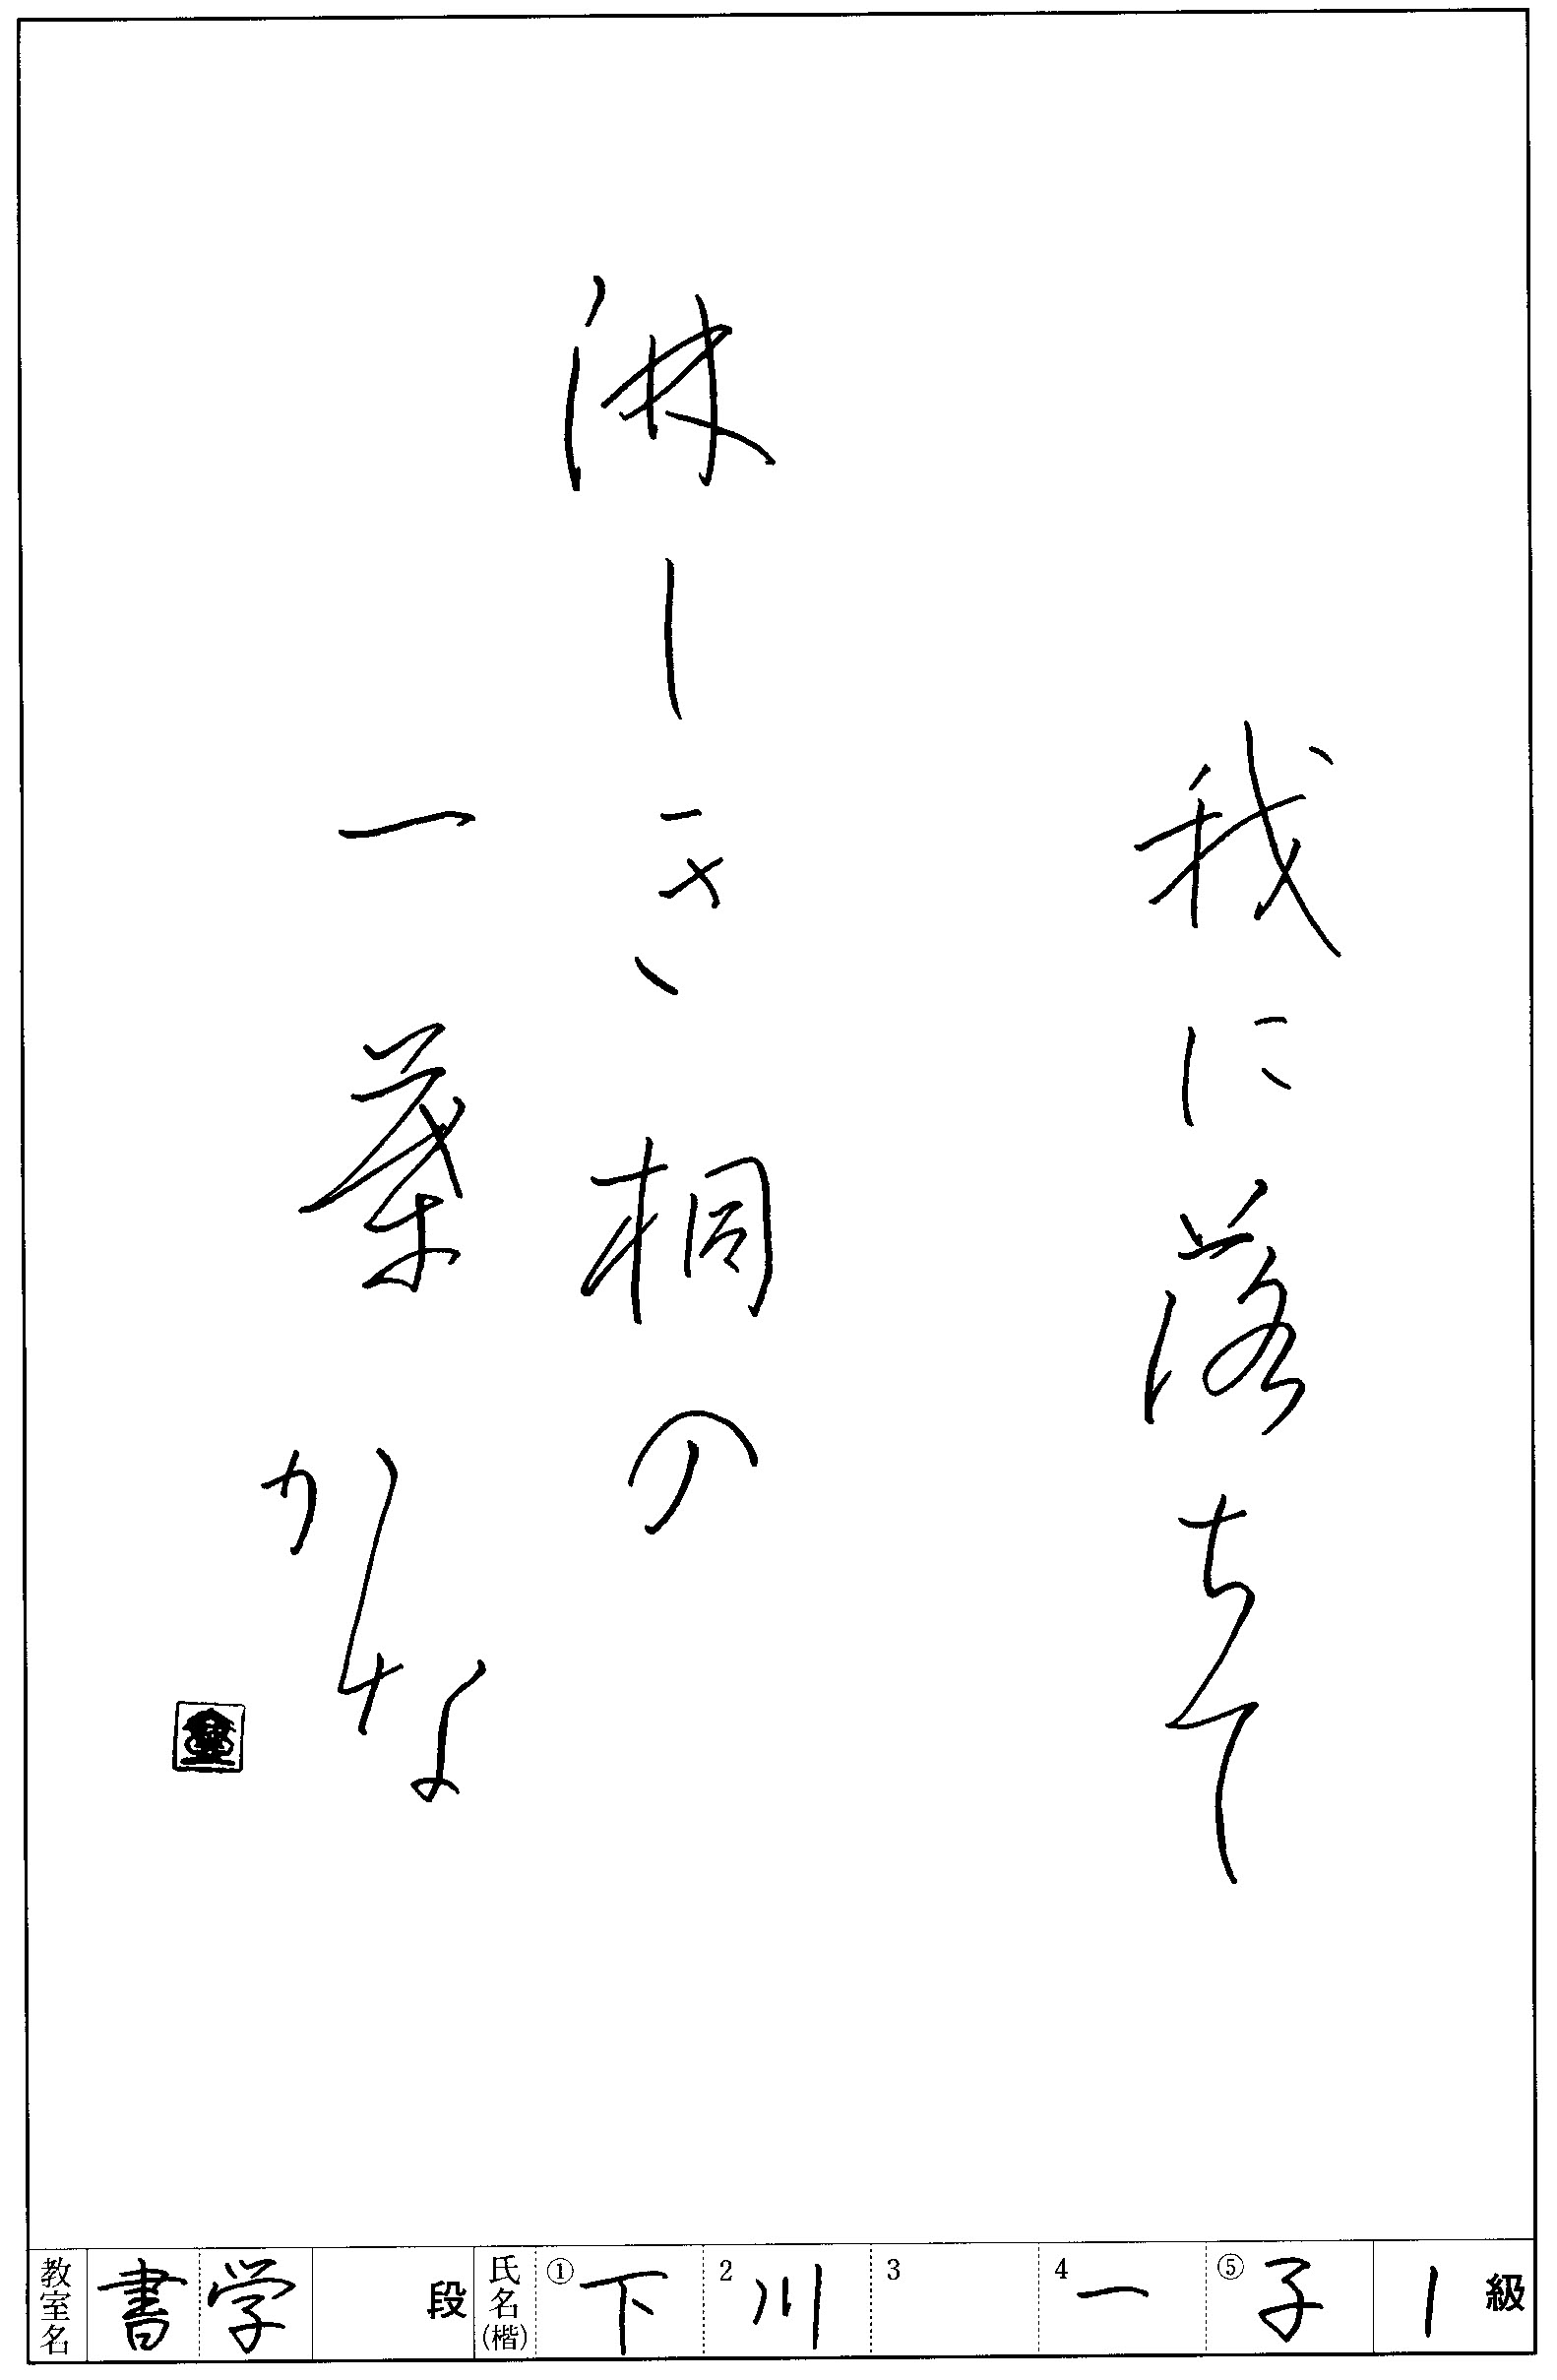 我に落ちて
淋しき桐の
一葉かな
教室名 書学 段 氏名(楷) ①下 2川 3 4一 ⑤子 1級